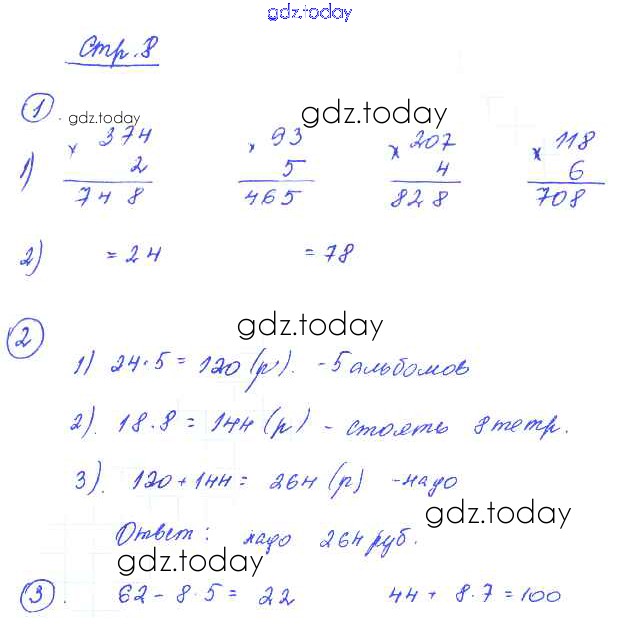 gdz.today
Стр. 8
1 gdz.today gdz.today
1) × 374 × 93 × 207 × 118
2 5 4 6
748 465 828 708
2) = 24 = 78
2 gdz.today
1) 24·5 = 120 (р). - 5 альбомов
2). 18·8 = 144 (р) - стоять 8 тетр.
3). 120 + 144 = 264 (р) - надо
gdz.today
Ответ: надо 264 руб.
gdz.today
3. 62 - 8·5 = 22 44 + 8·7 = 100